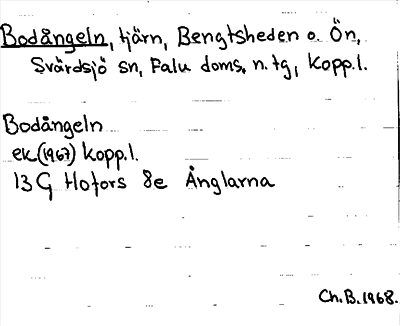 Bodångeln, tjärn, Bengtsheden o. Ön,
Svärdsjö sn, Falu doms. n. tg, Kopp. l.
Bodångeln
ek. (1967) Kopp. l.
13 G Hofors 8e Ånglarna
Ch. B. 1968.